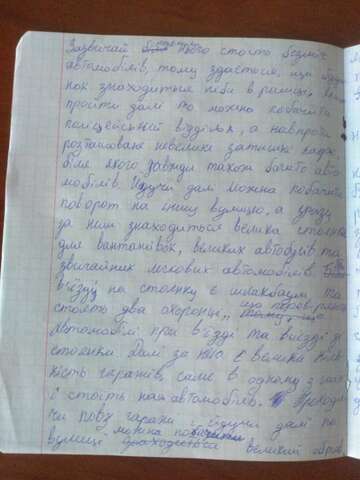 Зазвичай біля нього стоїть безліч
автомобілів, тому здається, що буди-
нок знаходиться ніби в рамці.
пройти далі то можна побачити
поліцейський відділок, а навпроти
розташоване невелике затишне кафе
біля якого завжди також багато авто-
мобілів. Йдучи далі можна побачити
поворот на іншу вулицю, а зразу
за ним знаходиться велика стоянка
для вантажівок, великих автобусів та
звичайних легкових автомобілів.
в'їзду на стоянку є шлакбаум та
стоїть два охоронці, що перевіряють
автомобілі при в'їзді та виїзді зі
стоянки. Далі за нею є велика кіль-
кість гаражів, саме в одному з них
і стоїть наш автомобіль. Проходя-
чи повз гаражі і йдучи далі по
вулиці можна побачити великий